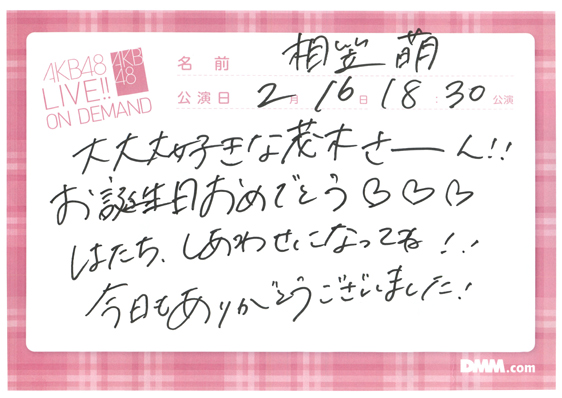 AKB48
LIVE!!
ON DEMAND
AKB
48
名前 相笠 萌
公演日 2月 16日 18:30 公演
大大大好きな茂木さーーん!!
お誕生日おめでとう♡♡♡
はたち、しあわせになってね!!
今日もありがとうございました!
DMM.com